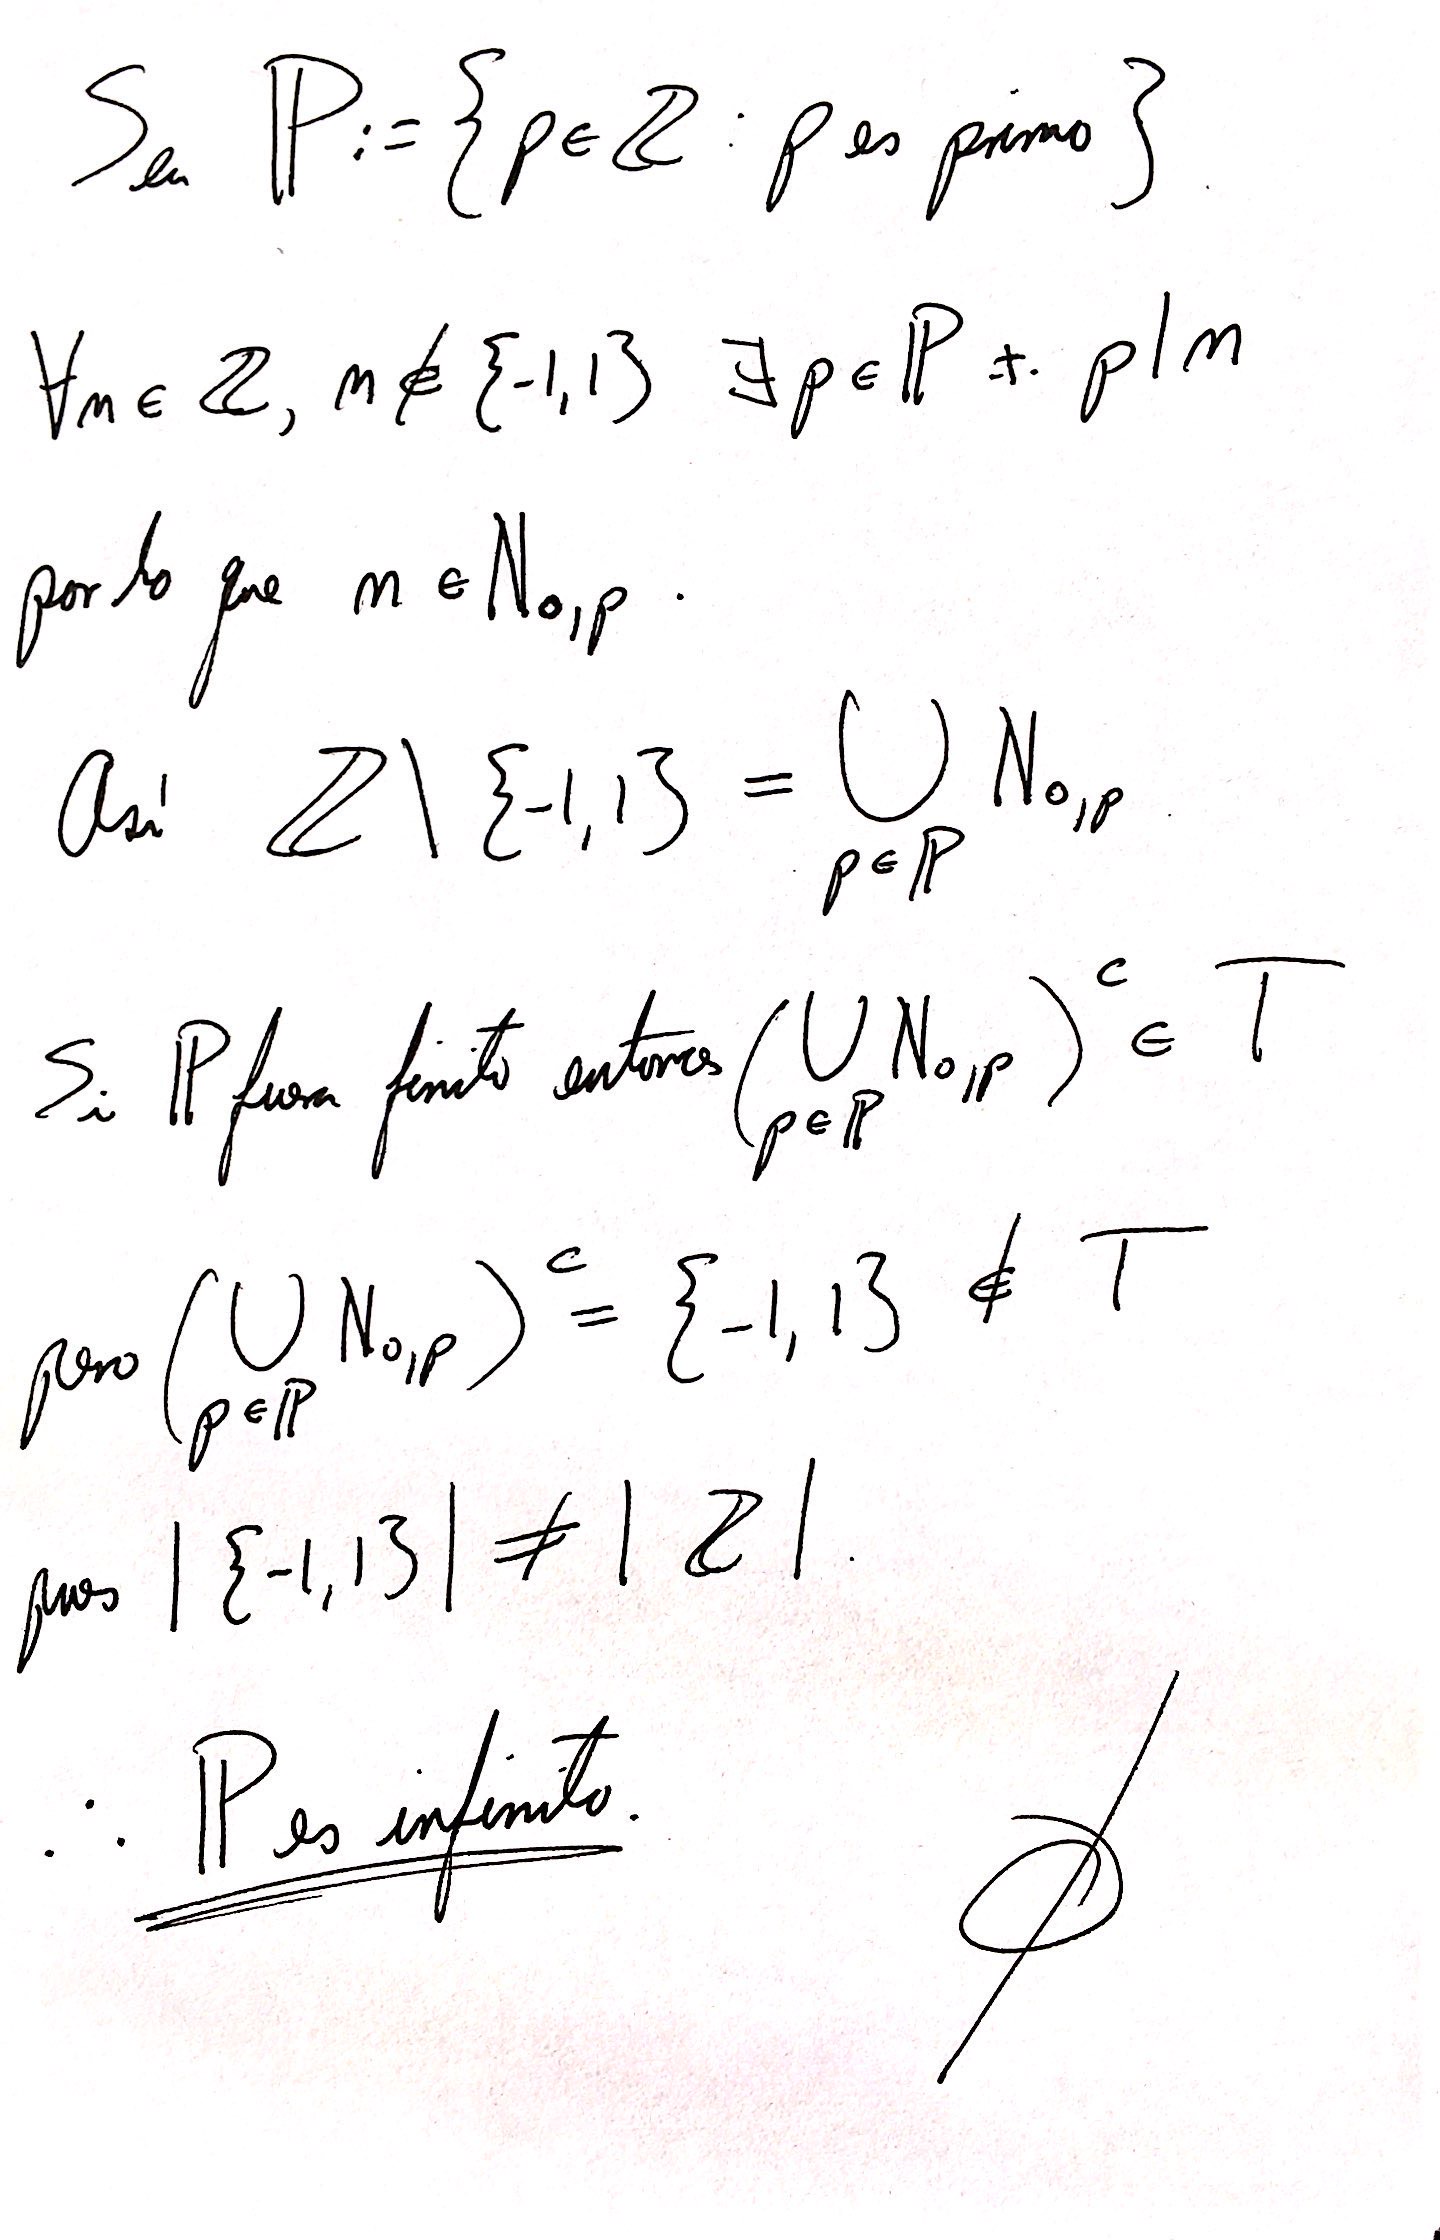 Sea ℙ := {p ∈ ℤ : p es primo}.
∀n ∈ ℤ, n ∉ {-1,1} ∃ p ∈ ℙ t. p | n
por lo que n ∈ N₀,ₚ .
Así ℤ \ {-1,1} = ⋃ N₀,ₚ
p ∈ ℙ
Si ℙ fuera finito entonces (⋃ N₀,ₚ)ᶜ ∈ T
p ∈ ℙ
pero (⋃ N₀,ₚ)ᶜ = {-1,1} ∉ T
p ∈ ℙ
pues |{-1,1}| ≠ |ℤ|.
∴ ℙ es infinito.